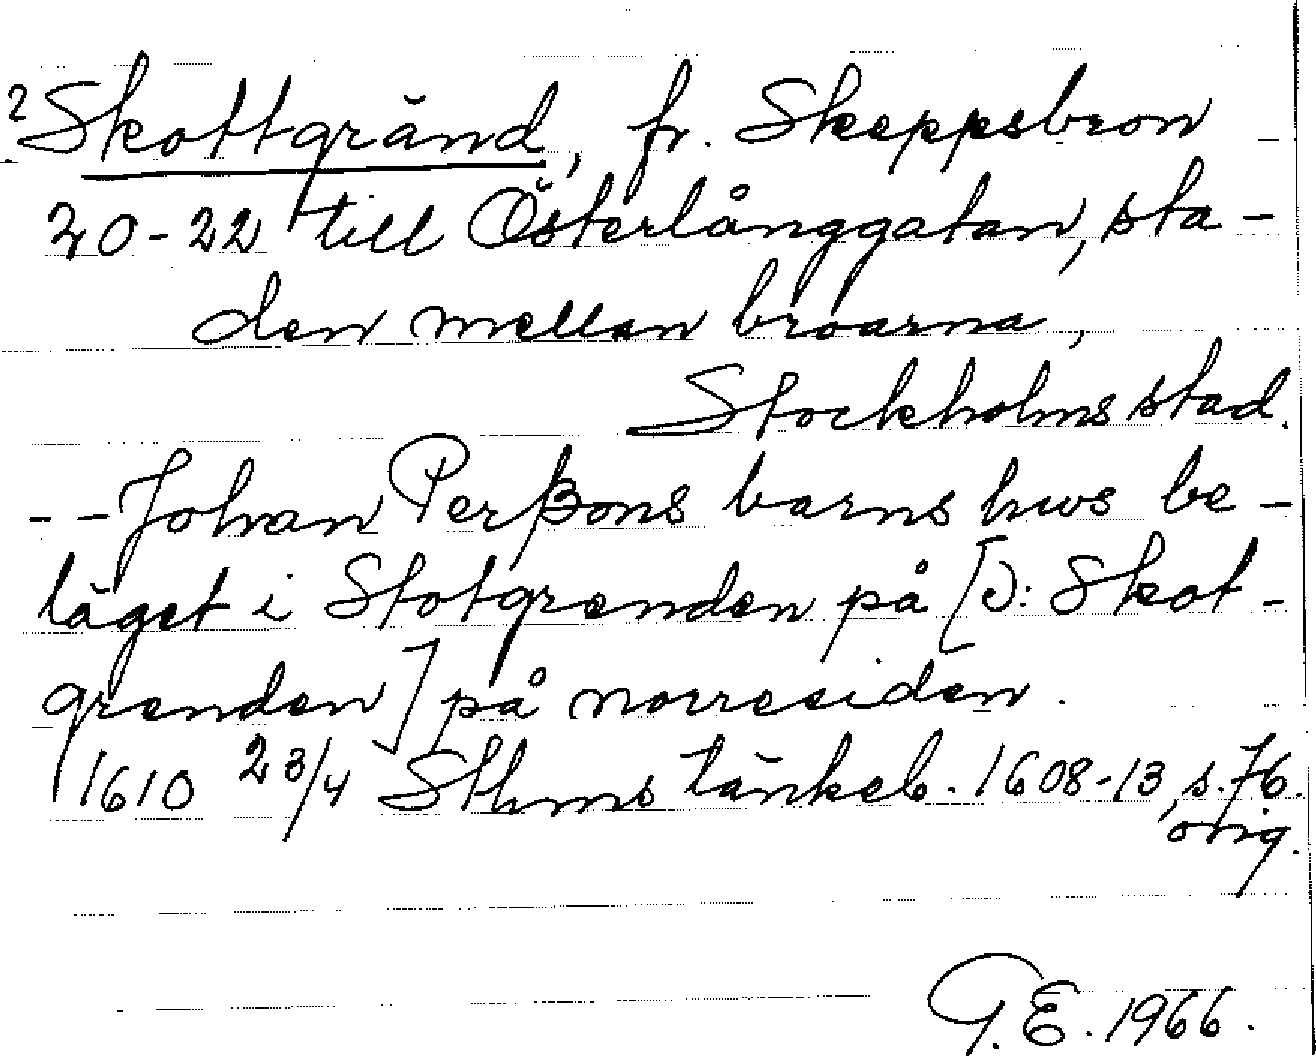 2 Skottgränd, fr. Skeppsbron
20-22 till Österlånggatan, sta-
den mellan broarna,
Stockholms stad.
- - Johan Perßons barns hws be-
läget i Stotgrenden på [ɔ: Skot-
grenden] på norresiden.
1610 23/4 Sthms tänkeb. 1608-13, s. 76.
orig.
G. E. 1966.